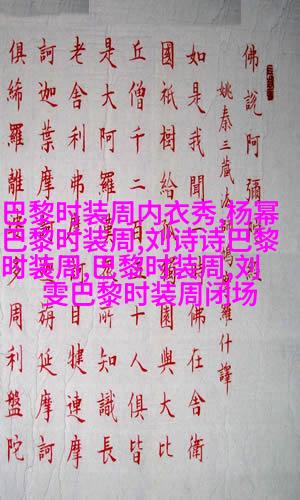 佛說阿彌陀經
姚秦三藏法師鳩摩羅什譯
如是我聞一時佛在舍衛
國祇樹給孤獨園與大比
丘僧千二百五十人俱皆
是大阿羅漢眾所知識長
老舍利弗摩訶目犍連摩
訶迦葉摩訶迦旃延摩訶
俱絺羅離婆多周利盤陀
巴黎时装周内衣秀,杨幂
巴黎时装周,刘诗诗巴黎
时装周,巴黎时装周,刘
雯巴黎时装周闭场